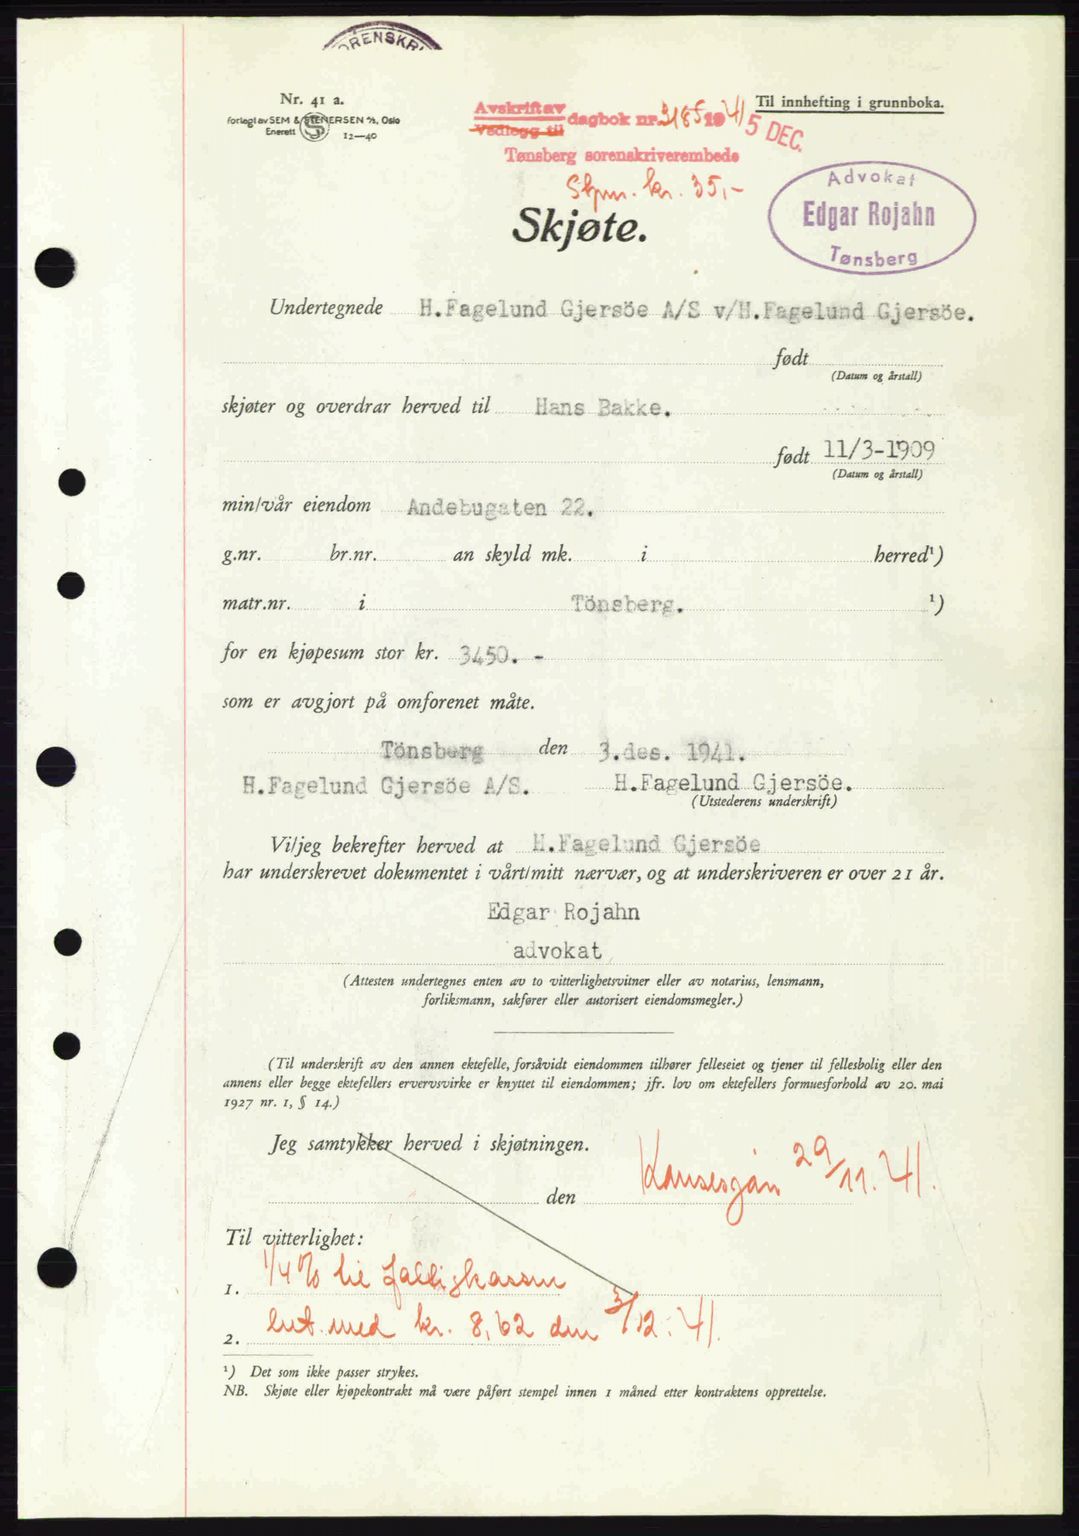 ORENSKRI
Nr. 41 a.
Forlagt av SEM & STENERSEN A/S, Oslo
Enerett 12-40
Avskrift av
Vedlegg til dagbok nr. 3185 1941
Tønsberg sorenskriverembede
5 DEC.
Til innhefting i grunnboka.
Stpm. kr. 35,-
Advokat
Edgar Rojahn
Tønsberg
Skjøte.
Undertegnede H.Fagelund Gjersöe A/S v/H.Fagelund Gjersöe.
født
(Datum og årstall)
skjøter og overdrar herved til Hans Bakke.
født 11/3-1909
(Datum og årstall)
min/vår eiendom Andebugaten 22.
g.nr. br.nr. an skyld mk. i herred¹)
matr.nr. i Tönsberg. ¹)
for en kjøpesum stor kr. 3450. -
som er avgjort på omforenet måte.
Tönsberg den 3.des. 1941.
H.Fagelund Gjersöe A/S. H.Fagelund Gjersöe.
(Utstederens underskrift)
Vi/jeg bekrefter herved at H.Fagelund Gjersöe
har underskrevet dokumentet i vårt/mitt nærvær, og at underskriveren er over 21 år.
Edgar Rojahn
advokat
(Attesten undertegnes enten av to vitterlighetsvitner eller av notarius, lensmann,
forliksmann, sakfører eller autorisert eiendomsmegler.)
(Til underskrift av den annen ektefelle, forsåvidt eiendommen tilhører felleseiet og tjener til fellesbolig eller den
annens eller begge ektefellers ervervsvirke er knyttet til eiendommen; jfr. lov om ektefellers formuesforhold av 20. mai
1927 nr. 1, § 14.)
Jeg samtykker herved i skjøtningen.
29/11. 41.
den
Til vitterlighet:
1. 1/4 % til
2. med kr. 8,62 den 3/12. 41.
¹) Det som ikke passer strykes.
NB. Skjøte eller kjøpekontrakt må være påført stempel innen 1 måned etter kontraktens opprettelse.